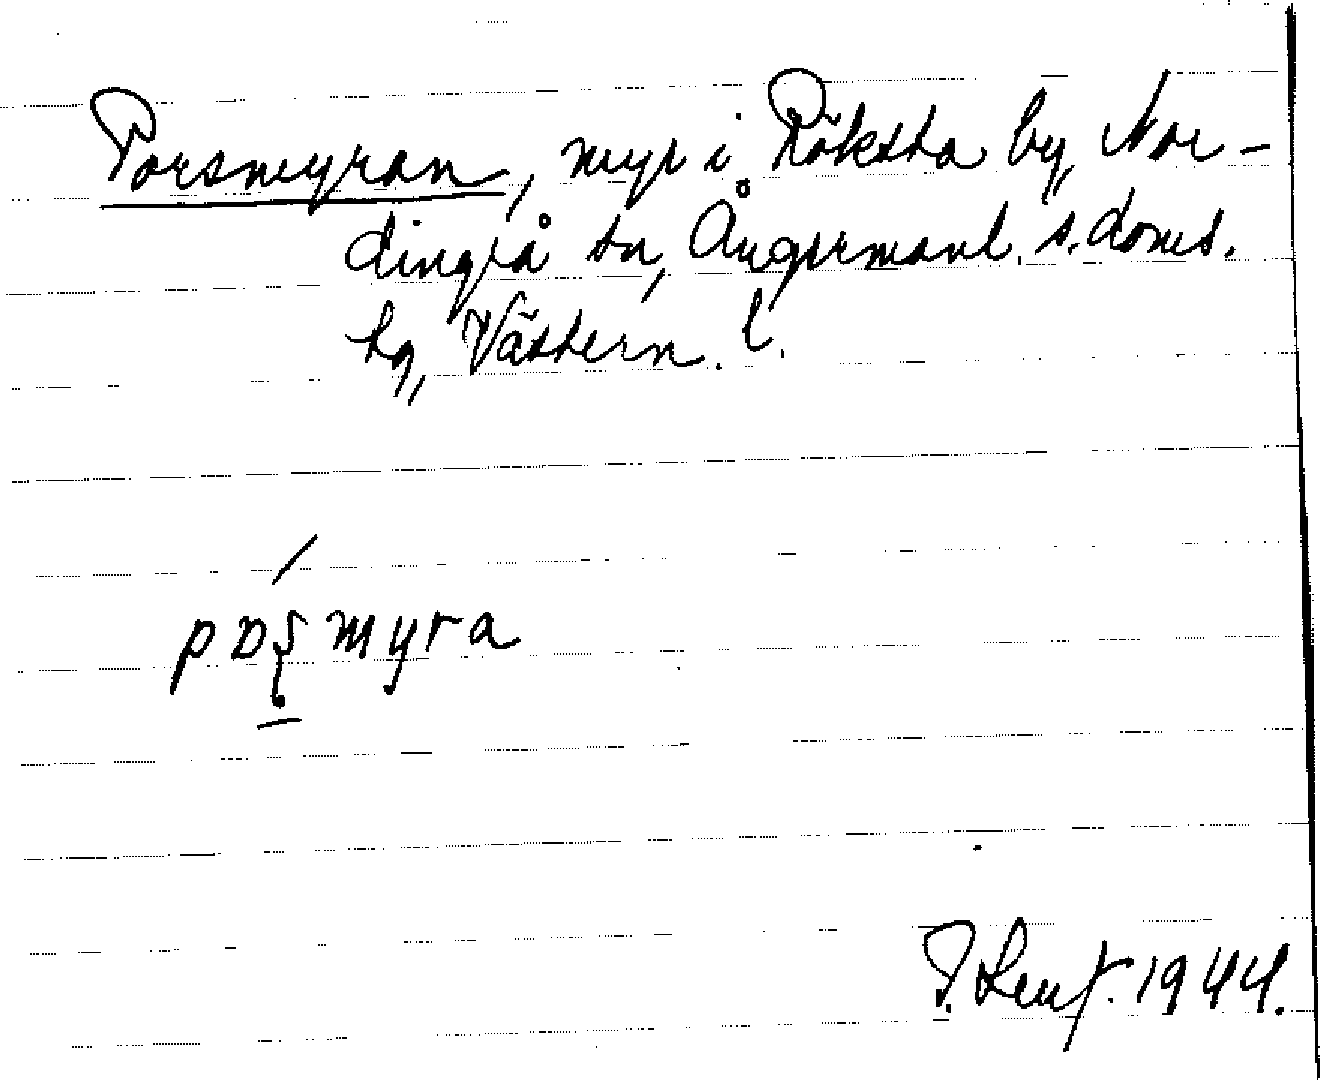 Porsmyran, myr i Röksta by, Nor-
dingrå sn, Ångermanl. s. doms.
hg, Västern. l.
poʂmyra
1944.